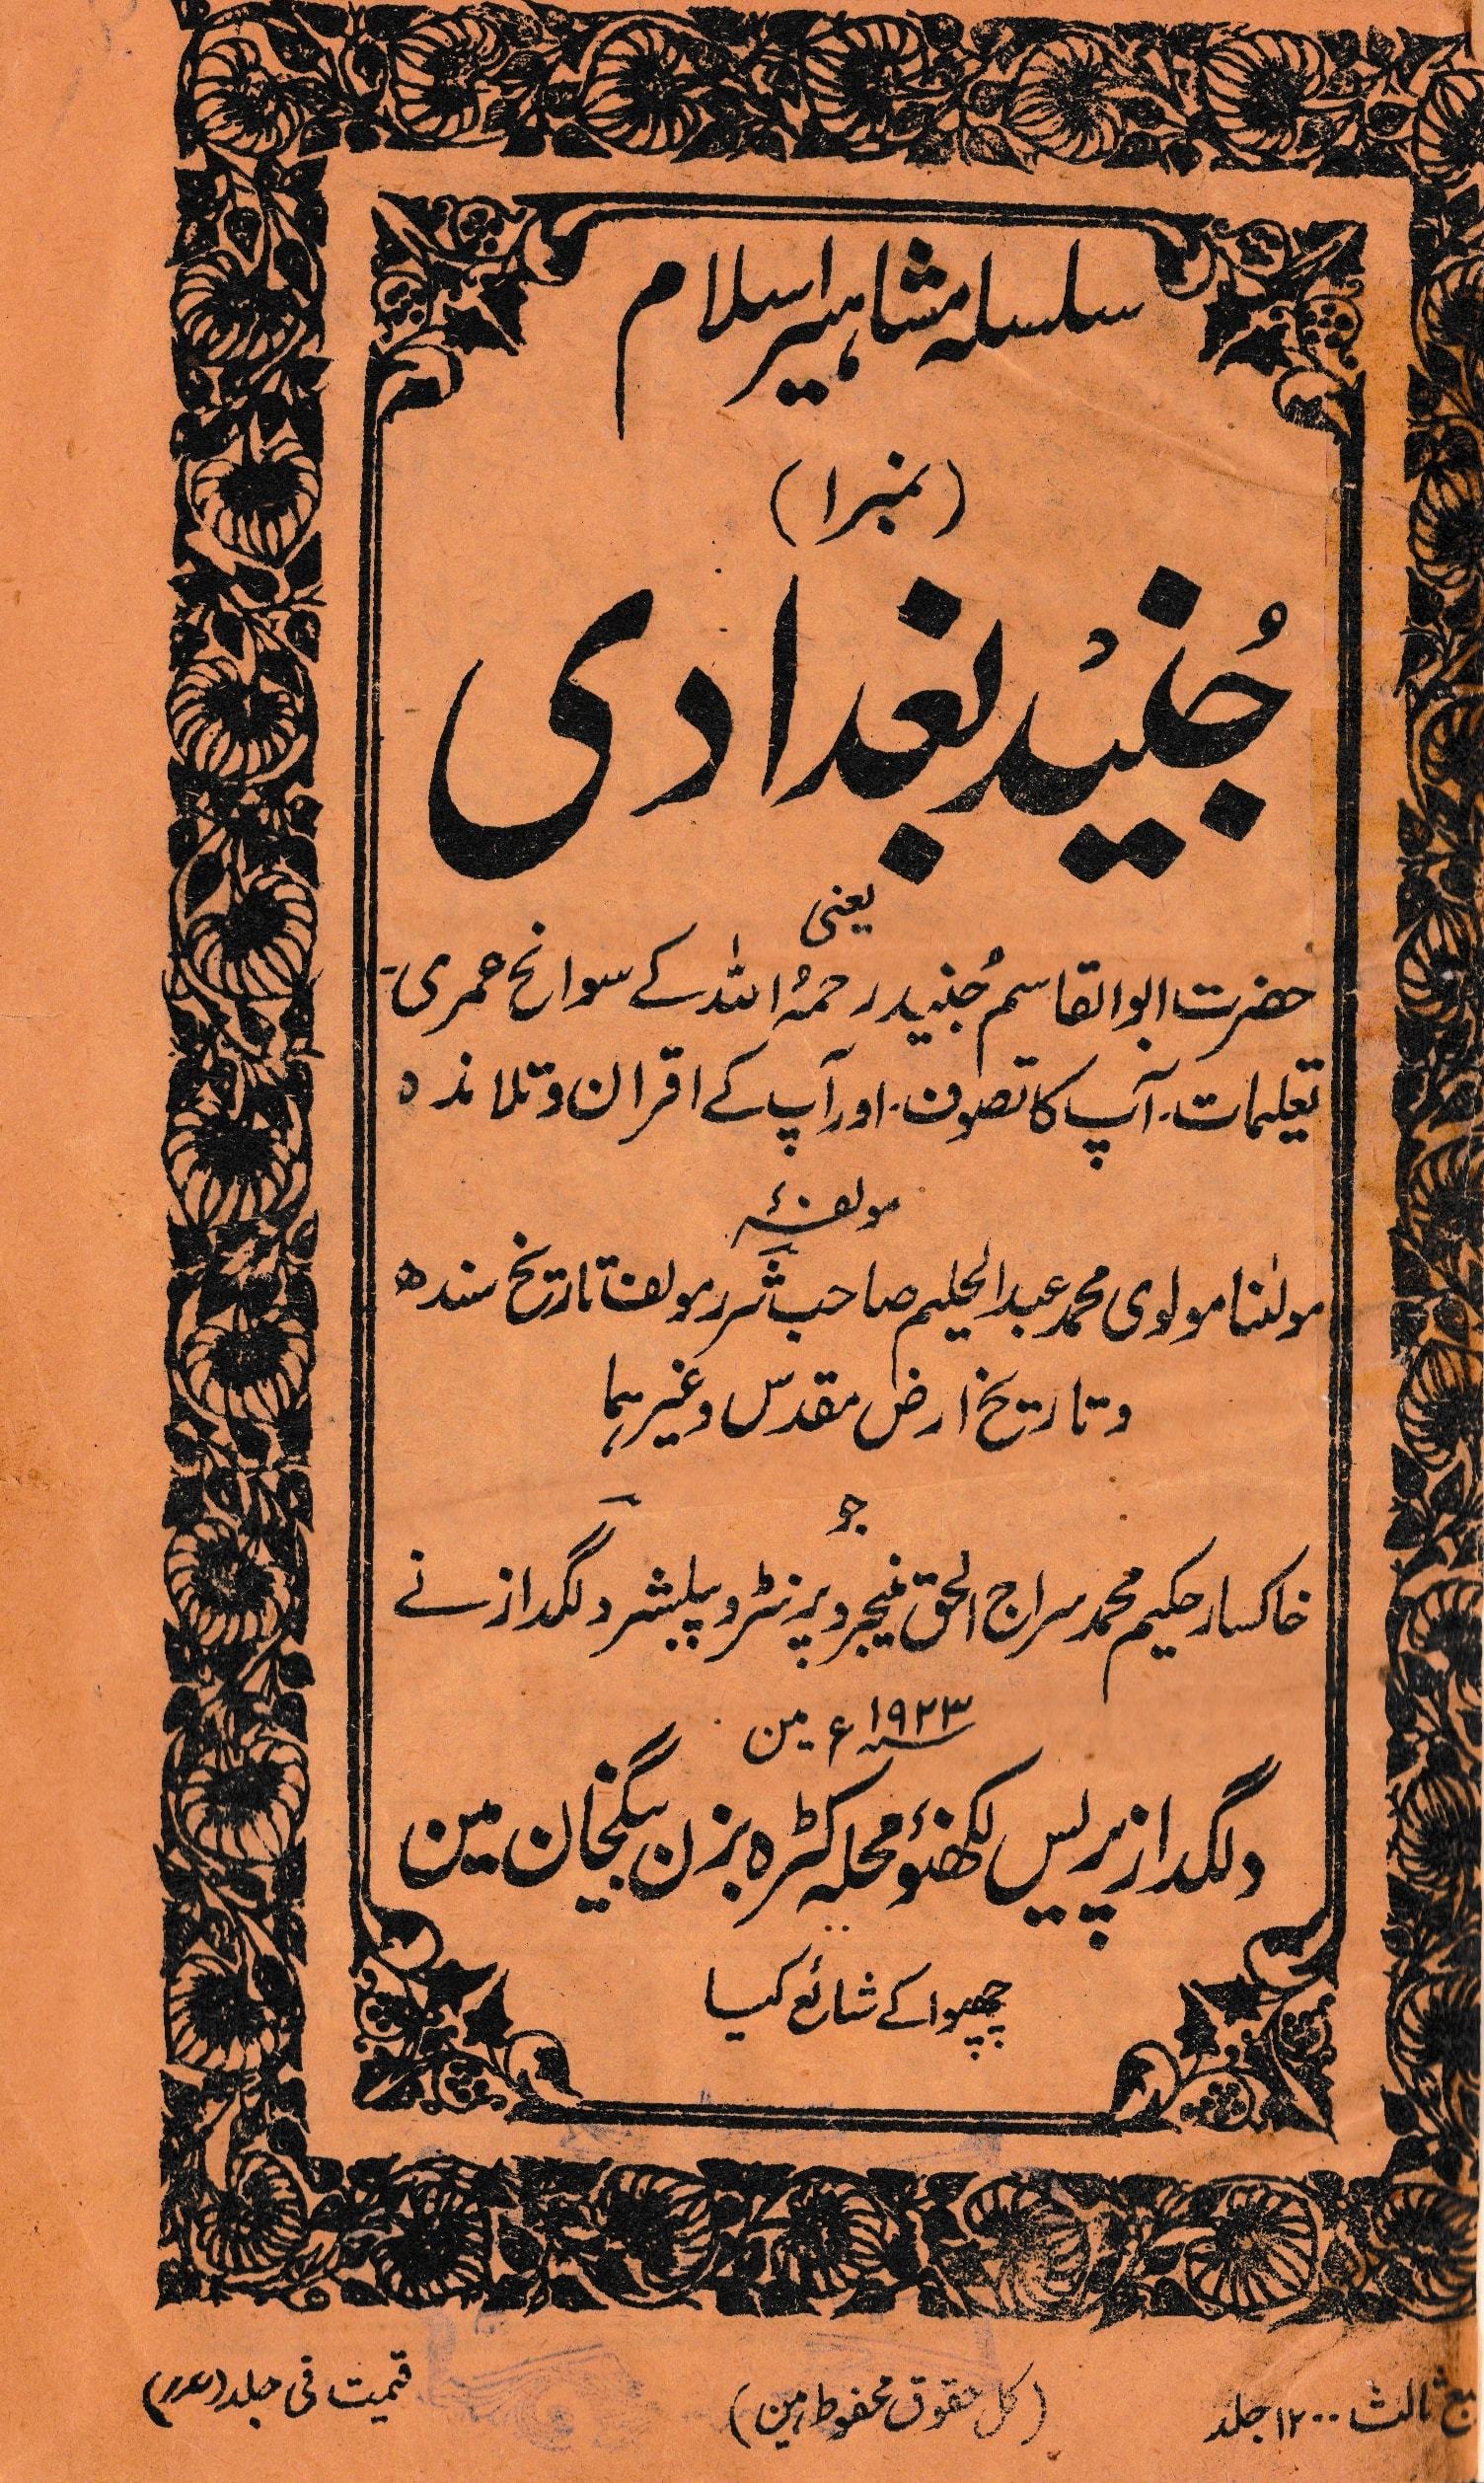 سلسلہ مشاہیر اسلام
(نمبر ۱)
جُنیْد بغدادی
یعنی
حضرت ابوالقاسم جُنید رحمۃُ اللہ کے سوانح عمری۔
تعلیمات۔ آپ کا تصوف۔ اور آپ کے اقران و تلامذہ
مولفۂ
مولٰنا مولوی محمد عبدالحلیم صاحب شرر مولف تاریخ سندھ
و تاریخ ارض مقدس وغیرہما
جو
خاکسار حکیم محمد سراج الحق منیجر و پرنٹر و پبلشر دلگداز نے
۱۹۲۳ء مین
دلگداز پریس لکھنؤ محلہ کٹرہ بزن بیگخان مین
چھپوا کے شائع کیا
ثالث ۱۲۰۰ جلد
(کل حقوق محفوظ ہین)
قیمت فی جلد